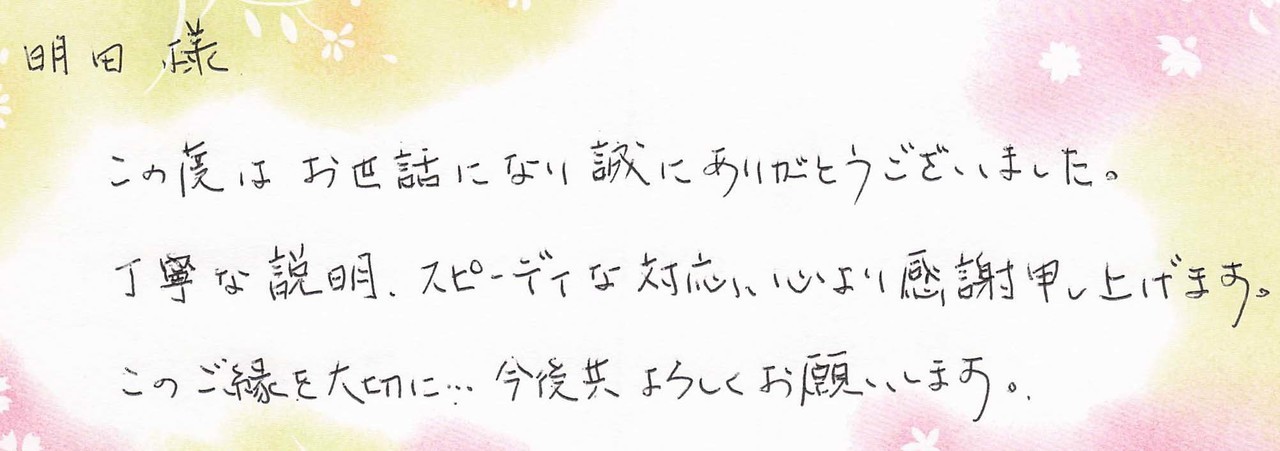 明田 様
この度は お世話になり 誠にありがとうございました。
丁寧な説明、スピーディな対応に、心より感謝申し上げます。
このご縁を大切に… 今後共 よろしくお願いします。